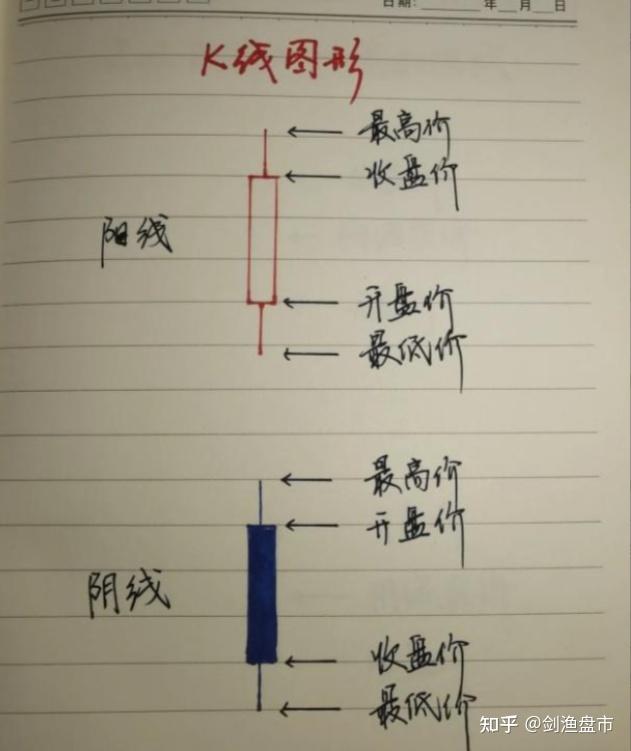 日期: 年 月 日
K线图形
最高价
收盘价
阳线
开盘价
最低价
最高价
开盘价
阴线
收盘价
最低价
知乎 @剑渔盘市